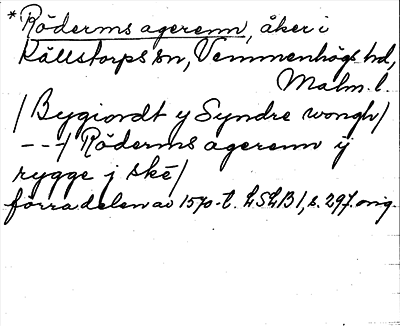 *Röderms agerenn, åker i
Källstorps sn, Vemmenhögs hd,
Malm. l.
/Bygiordt y Syndre wongh/
---/Röderms agerenn ÿ
rygge j skē/
förra delen av 1570-t. LSLB1, s. 297. orig.